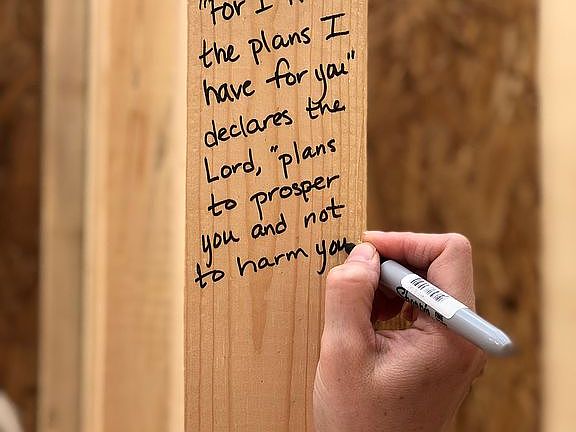 "for I
the plans I
have for you"
declares the
Lord, "plans
to prosper
you and not
to harm you